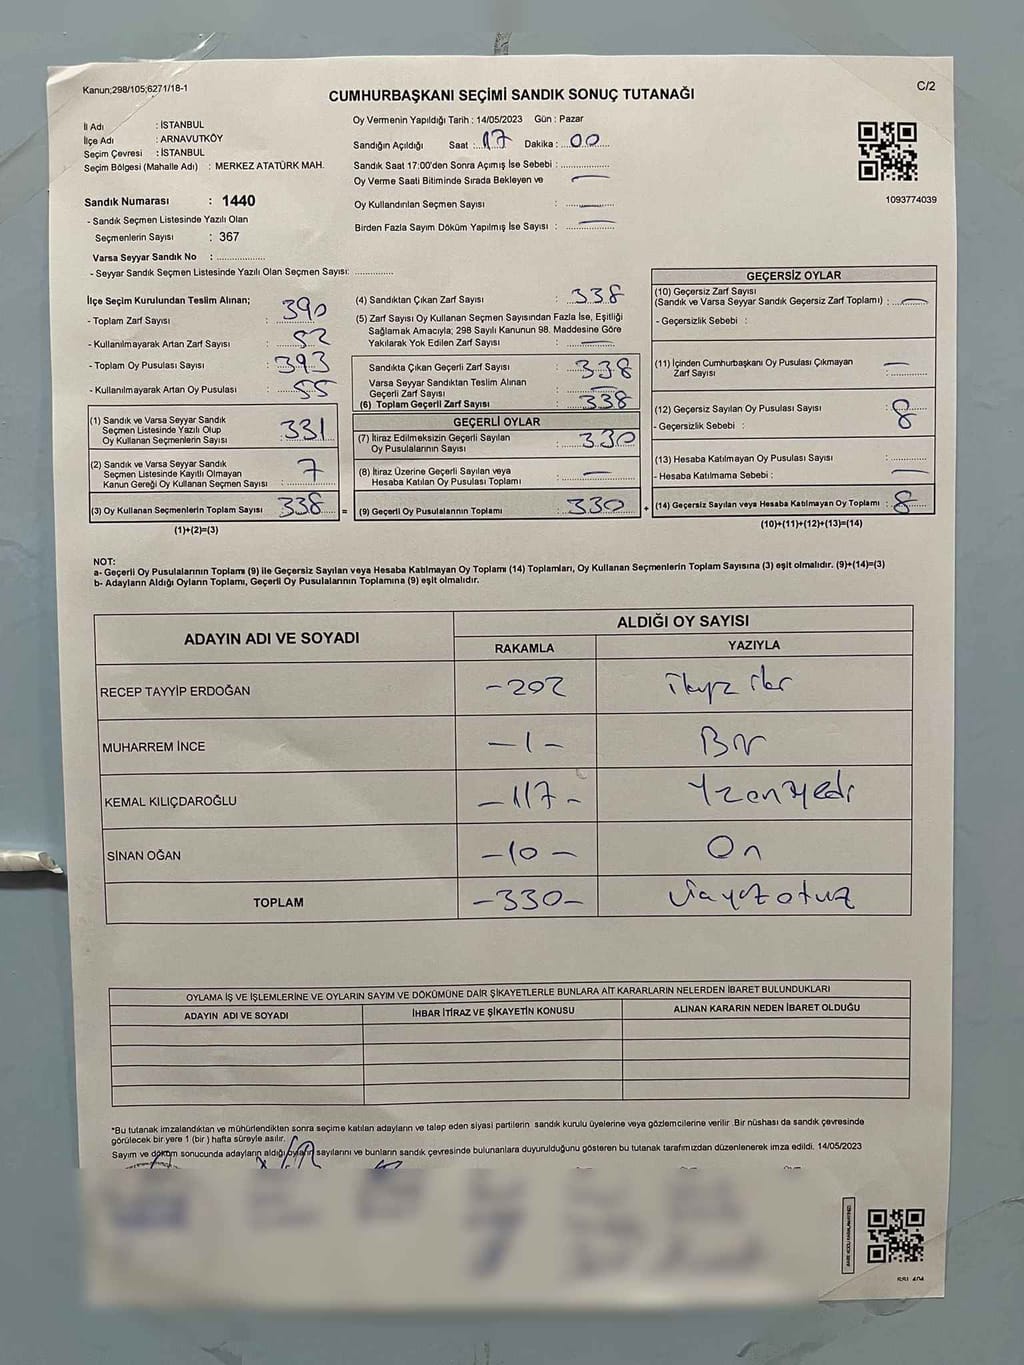 Kanun;298/105;6271/18-1
C/2
CUMHURBAŞKANI SEÇİMİ SANDIK SONUÇ TUTANAĞI
İl Adı : İSTANBUL
İlçe Adı : ARNAVUTKÖY
Seçim Çevresi : İSTANBUL
Seçim Bölgesi (Mahalle Adı) : MERKEZ ATATÜRK MAH.
Oy Vermenin Yapıldığı Tarih : 14/05/2023 Gün : Pazar
Sandığın Açıldığı Saat : 17 Dakika : 00
Sandık Saat 17:00'den Sonra Açımış İse Sebebi :
Oy Verme Saati Bitiminde Sırada Bekleyen ve
Oy Kullandırılan Seçmen Sayısı :
Birden Fazla Sayım Döküm Yapılmış İse Sayısı :
1093774039
Sandık Numarası : 1440
- Sandık Seçmen Listesinde Yazılı Olan
Seçmenlerin Sayısı : 367
Varsa Seyyar Sandık No :
- Seyyar Sandık Seçmen Listesinde Yazılı Olan Seçmen Sayısı:
İlçe Seçim Kurulundan Teslim Alınan;
- Toplam Zarf Sayısı : 390
- Kullanılmayarak Artan Zarf Sayısı : 52
- Toplam Oy Pusulası Sayısı : 393
- Kullanılmayarak Artan Oy Pusulası : 55
(1) Sandık ve Varsa Seyyar Sandık
Seçmen Listesinde Yazılı Olup
Oy Kullanan Seçmenlerin Sayısı : 331
(2) Sandık ve Varsa Seyyar Sandık
Seçmen Listesinde Kayıtlı Olmayan
Kanun Gereği Oy Kullanan Seçmen Sayısı : 7
(3) Oy Kullanan Seçmenlerin Toplam Sayısı : 338 =
(1)+(2)=(3)
(4) Sandıktan Çıkan Zarf Sayısı : 338
(5) Zarf Sayısı Oy Kullanan Seçmen Sayısından Fazla İse, Eşitliği
Sağlamak Amacıyla; 298 Sayılı Kanunun 98. Maddesine Göre
Yakılarak Yok Edilen Zarf Sayısı :
Sandıkta Çıkan Geçerli Zarf Sayısı : 338
Varsa Seyyar Sandıktan Teslim Alınan
Geçerli Zarf Sayısı :
(6) Toplam Geçerli Zarf Sayısı : 338
GEÇERLİ OYLAR
(7) İtiraz Edilmeksizin Geçerli Sayılan
Oy Pusulalarının Sayısı : 330
(8) İtiraz Üzerine Geçerli Sayılan veya
Hesaba Katılan Oy Pusulası Toplamı :
(9) Geçerli Oy Pusulalarının Toplamı : 330 +
GEÇERSİZ OYLAR
(10) Geçersiz Zarf Sayısı
(Sandık ve Varsa Seyyar Sandık Geçersiz Zarf Toplamı) :
- Geçersizlik Sebebi :
(11) İçinden Cumhurbaşkanı Oy Pusulası Çıkmayan
Zarf Sayısı :
(12) Geçersiz Sayılan Oy Pusulası Sayısı : 8
- Geçersizlik Sebebi :
(13) Hesaba Katılmayan Oy Pusulası Sayısı :
- Hesaba Katılmama Sebebi :
(14) Geçersiz Sayılan veya Hesaba Katılmayan Oy Toplamı : 8
(10)+(11)+(12)+(13)=(14)
NOT:
a- Geçerli Oy Pusulalarının Toplamı (9) ile Geçersiz Sayılan veya Hesaba Katılmayan Oy Toplamı (14) Toplamları, Oy Kullanan Seçmenlerin Toplam Sayısına (3) eşit olmalıdır. (9)+(14)=(3)
b- Adayların Aldığı Oyların Toplamı, Geçerli Oy Pusulalarının Toplamına (9) eşit olmalıdır.
ADAYIN ADI VE SOYADI
ALDIĞI OY SAYISI
RAKAMLA YAZIYLA
RECEP TAYYİP ERDOĞAN -202 ikiyz iki
MUHARREM İNCE -1- Bir
KEMAL KILIÇDAROĞLU -117- Yzonyedi
SİNAN OĞAN -10- On
TOPLAM -330- üçyüzotuz
OYLAMA İŞ VE İŞLEMLERİNE VE OYLARIN SAYIM VE DÖKÜMÜNE DAİR ŞİKAYETLERLE BUNLARA AİT KARARLARIN NELERDEN İBARET BULUNDUKLARI
ADAYIN ADI VE SOYADI İHBAR İTİRAZ VE ŞİKAYETİN KONUSU ALINAN KARARIN NEDEN İBARET OLDUĞU
*Bu tutanak imzalandıktan ve mühürlendikten sonra seçime katılan adayların ve talep eden siyasi partilerin sandık kurulu üyelerine veya gözlemcilerine verilir .Bir nüshası da sandık çevresinde
görülecek bir yere 1 (bir ) hafta süreyle asılır.
Sayım ve döküm sonucunda adayların aldığı oyların sayılarını ve bunların sandık çevresinde bulunanlara duyurulduğunu gösteren bu tutanak tarafımızdan düzenlenerek imza edildi. 14/05/2023